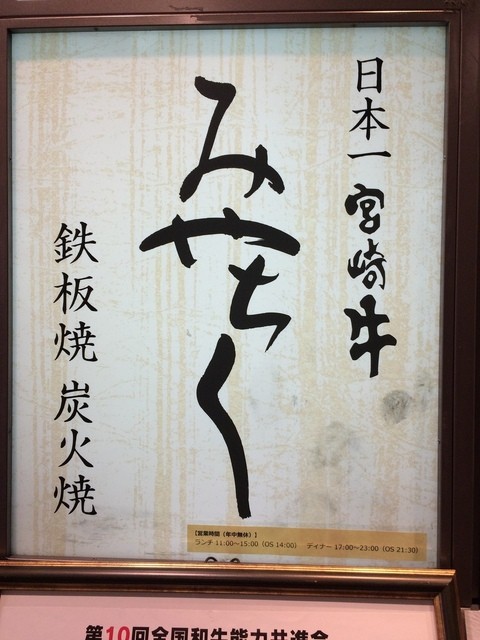 日本一 宮崎牛
みやちく
鉄板焼 炭火焼
【営業時間（年中無休）】
ランチ 11:00〜15:00（OS 14:00） ディナー 17:00〜23:00（OS 21:30）
第10回全国和牛能力共進会